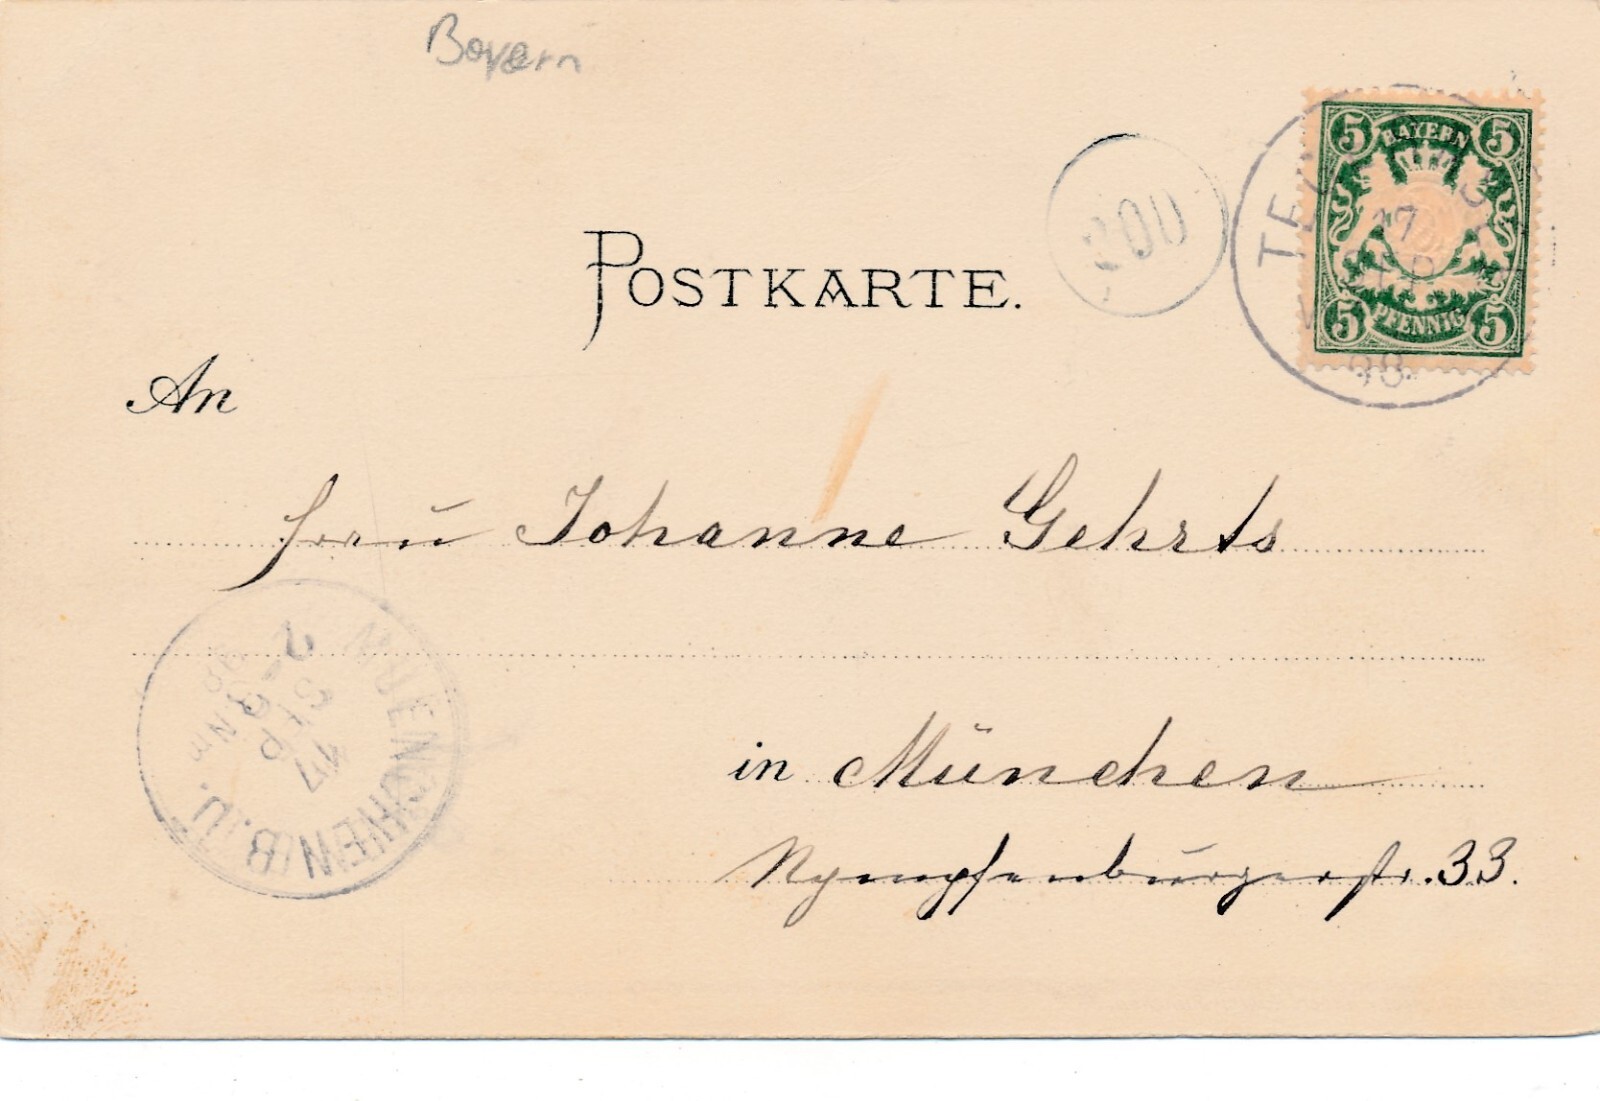 Bayern
5 BAYERN 5
17
SEP
98
5 PFENNIG 5
POSTKARTE.
An
Frau Johanne Gehrts
MUENCHEN B.
17
SEP
2-3
Nm
98
in München
Nymphenburgerstr. 33.